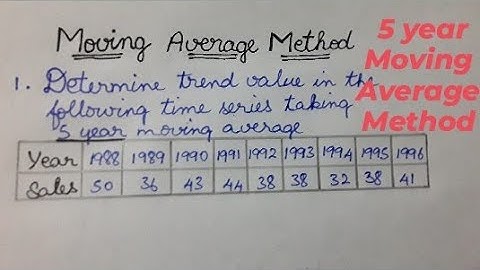 Moving Average Method
1. Determine trend value in the
following time series taking
5 year moving average
Year 1988 1989 1990 1991 1992 1993 1994 1995 1996
Sales 50 36 43 44 38 38 32 38 41
5 year
Moving
Average
Method